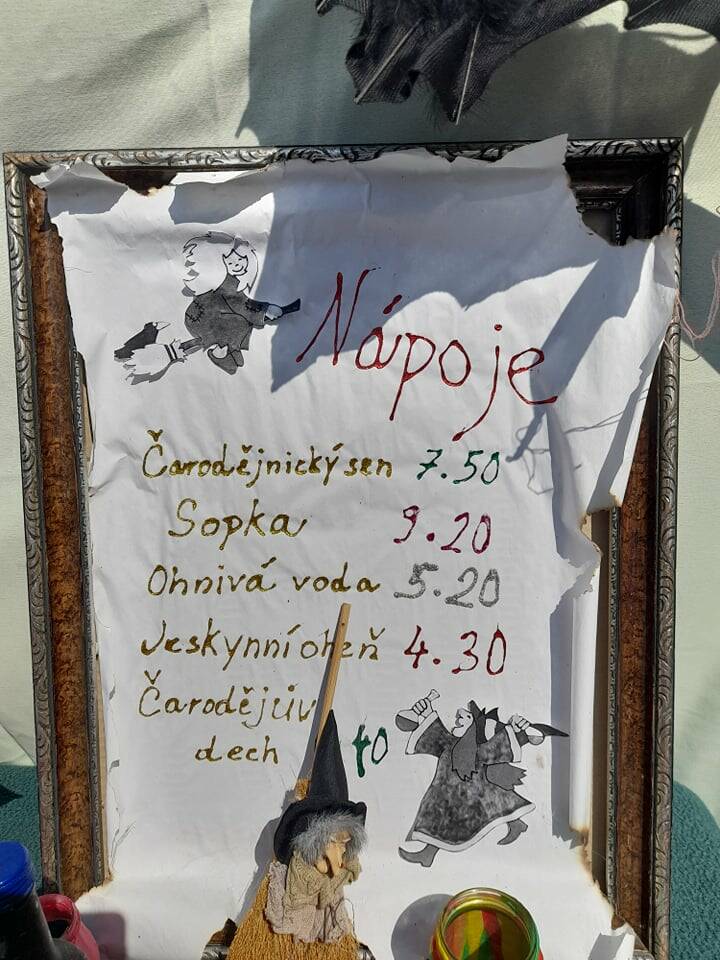 Nápoje
Čarodějnický sen 7.50
Sopka 9.20
Ohnivá voda 5.20
Jeskynní oheň 4.30
Čarodějův
dech